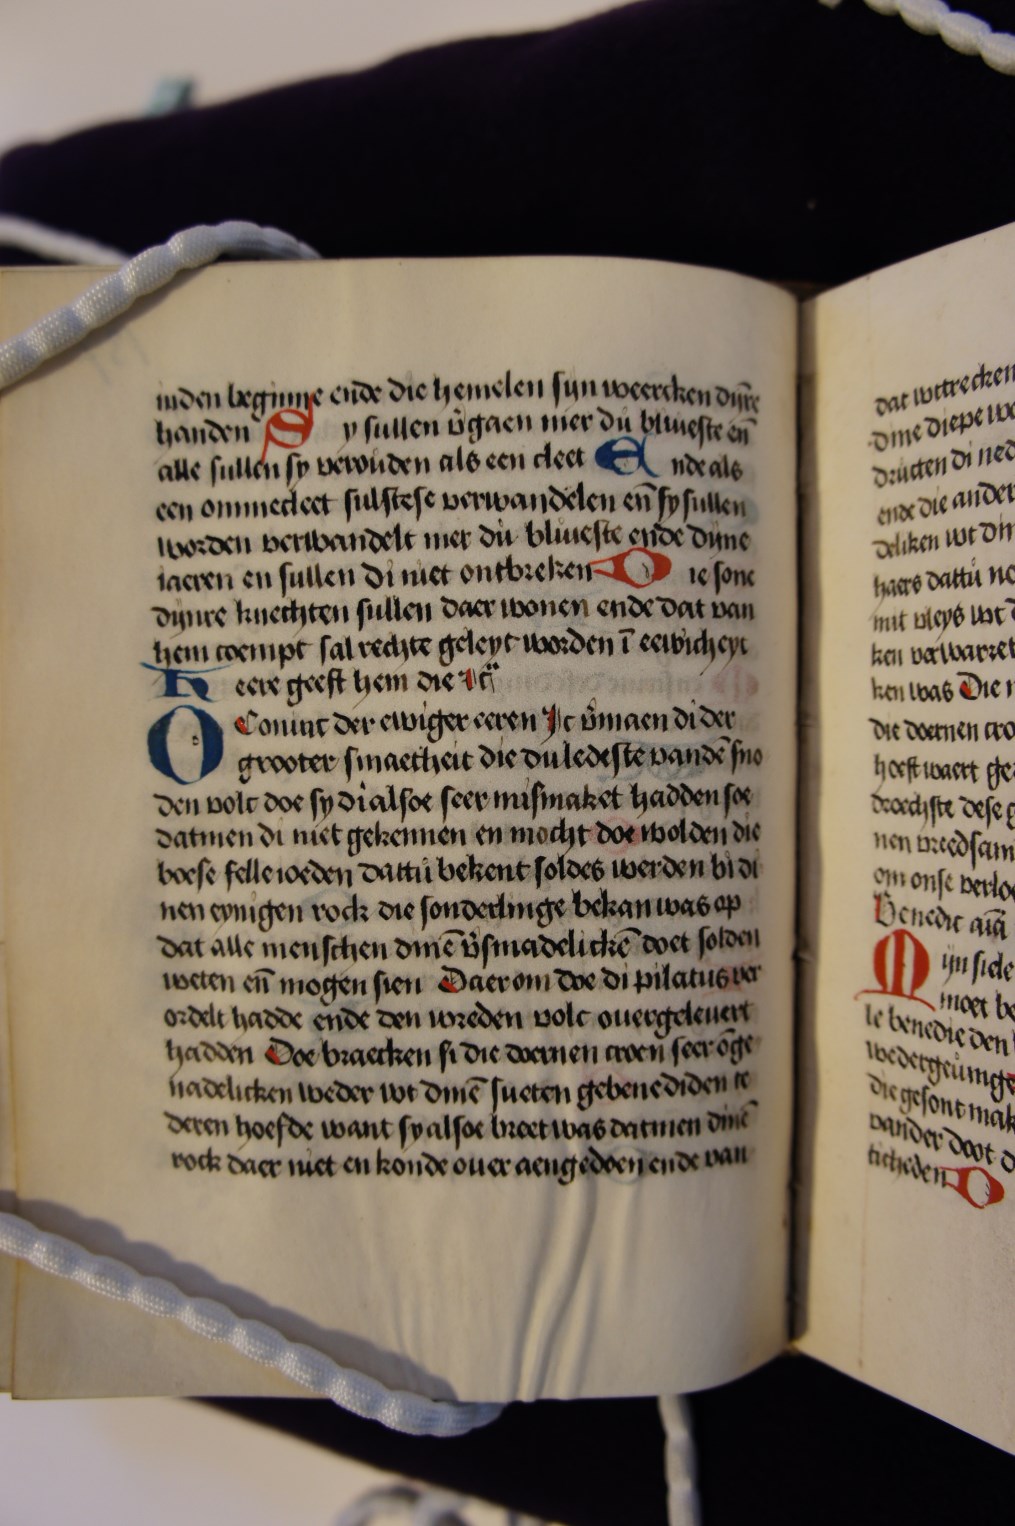 inden beginne ende die hemelen sijn weercken dijnre
handen Sy sullen v̄gaen mer du bliueste en̄
alle sullen sy verouden als een cleet Ende als
een ommecleet sulstese verwandelen en̄ sy sullen
worden verwandelt mer du bliueste ende dijne
iaeren en sullen di niet ontbreken Die sone
dijnre knechten sullen daer wonen ende dat van
hem coempt sal rechte geleyt worden ī eewicheyt
Heere geeft hem die
O Coninc der ewiger eeren Ic v̄maen di der
grooter smaetheit die du ledeste vandē sno
den volc doe sy di alsoe seer mismaket hadden soe
datmen di niet gekennen en mocht doe wolden die
boese felle ioeden dattu bekent soldes werden bi di
nen eynigen rock die sonderlinge bekan was op
dat alle menschen dinē v̄smadelickē doet solden
weten en̄ mogen sien Daerom doe di pilatus ver
ordelt hadde ende den wreden volc ouergeleuert
hadden Doe braecken si die doernen croen seer ōge
nadelicken weder wt dinē sueten gebenediden te
deren hoefde want sy alsoe breet was datmen dinē
rock daer niet en konde ouer aengedoen ende van
dat wttrecken
dine diepe
dructen di
ende die
deliken wt
haers dattu
mit vleys wt
ken verwarret
ken was Die
die doernen
hoeft waert
droechste dese
nen vreedsam
om onse
Benedic aīā
Mijn siele
moet
le benedie den
die gesont
vander doot
ticheden